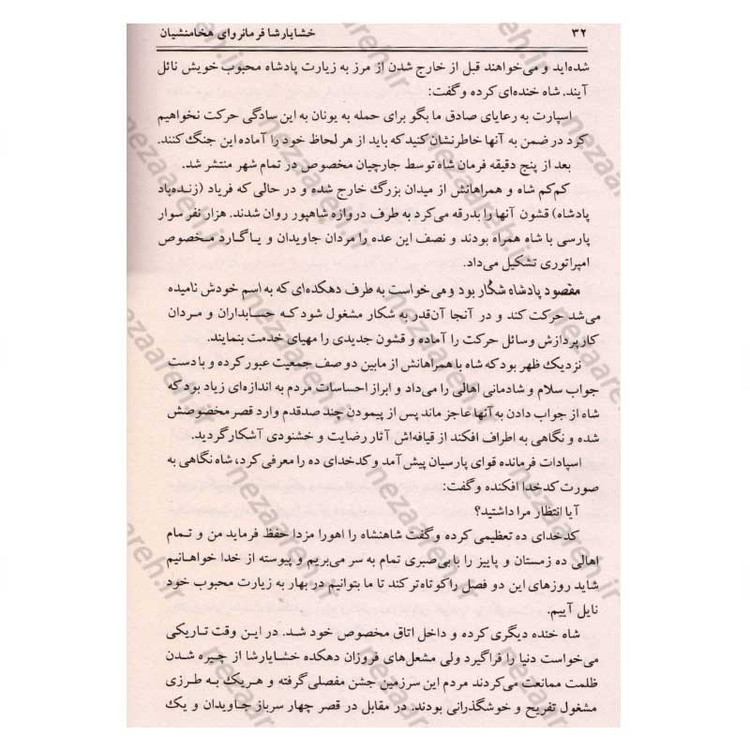 ۳۲ خشایارشا فرمانروای هخامنشیان
شده‌اید و می‌خواهند قبل از خارج شدن از مرز به زیارت پادشاه محبوب خویش نائل
آیند. شاه خنده‌ای کرده و گفت:
اسپارت به رعایای صادق ما بگو برای حمله به یونان به این سادگی حرکت نخواهیم
کرد در ضمن به آنها خاطرنشان کنید که باید از هر لحاظ خود را آماده این جنگ کنند.
بعد از پنج دقیقه فرمان شاه توسط جارچیان مخصوص در تمام شهر منتشر شد.
کم‌کم شاه و همراهانش از میدان بزرگ خارج شده و در حالی که فریاد (زنده‌باد
پادشاه) قشون آنها را بدرقه می‌کرد به طرف دروازه شاهپور روان شدند. هزار نفر سوار
پارسی با شاه همراه بودند و نصف این عده را مردان جاویدان و یا گارد مخصوص
امپراتوری تشکیل می‌داد.
مقصود پادشاه شکار بود و می‌خواست به طرف دهکده‌ای که به اسم خودش نامیده
می‌شد حرکت کند و در آنجا آن‌قدر به شکار مشغول شود که حسابداران و مردان
کارپردازش وسائل حرکت را آماده و قشون جدیدی را مهیای خدمت بنمایند.
نزدیک ظهر بود که شاه با همراهانش از مابین دو صف جمعیت عبور کرده و با دست
جواب سلام و شادمانی اهالی را می‌داد و ابراز احساسات مردم به اندازه‌ای زیاد بود که
شاه از جواب دادن به آنها عاجز ماند پس از پیمودن چند صدقدم وارد قصر مخصوصش
شده و نگاهی به اطراف افکند از قیافه‌اش آثار رضایت و خشنودی آشکار گردید.
اسپادات فرمانده قوای پارسیان پیش آمد و کدخدای ده را معرفی کرد، شاه نگاهی به
صورت کدخدا افکنده و گفت:
آیا انتظار مرا داشتید؟
کدخدای ده تعظیمی کرده و گفت شاهنشاه را اهورا مزدا حفظ فرماید من و تمام
اهالی ده زمستان و پاییز را با بی‌صبری تمام به سر می‌بریم و پیوسته از خدا خواهانیم
شاید روزهای این دو فصل را کوتاه‌تر کند تا ما بتوانیم در بهار به زیارت محبوب خود
نایل آییم.
شاه خنده دیگری کرده و داخل اتاق مخصوص خود شد. در این وقت تاریکی
می‌خواست دنیا را فراگیرد ولی مشعل‌های فروزان دهکده خشایارشا از چیره شدن
ظلمت ممانعت می‌کردند مردم این سرزمین جشن مفصلی گرفته و هریک به طرزی
مشغول تفریح و خوشگذرانی بودند. در مقابل در قصر چهار سرباز جاویدان و یک
nezaareh.ir